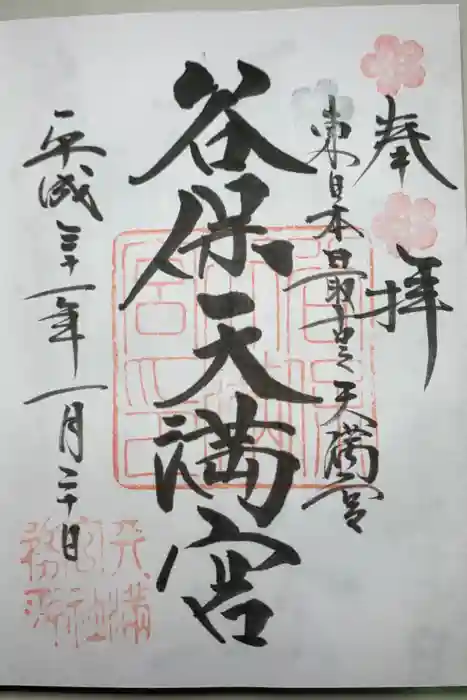 奉拝
東日本最古之天満宮
谷保天満宮
平成三十一年一月二十日